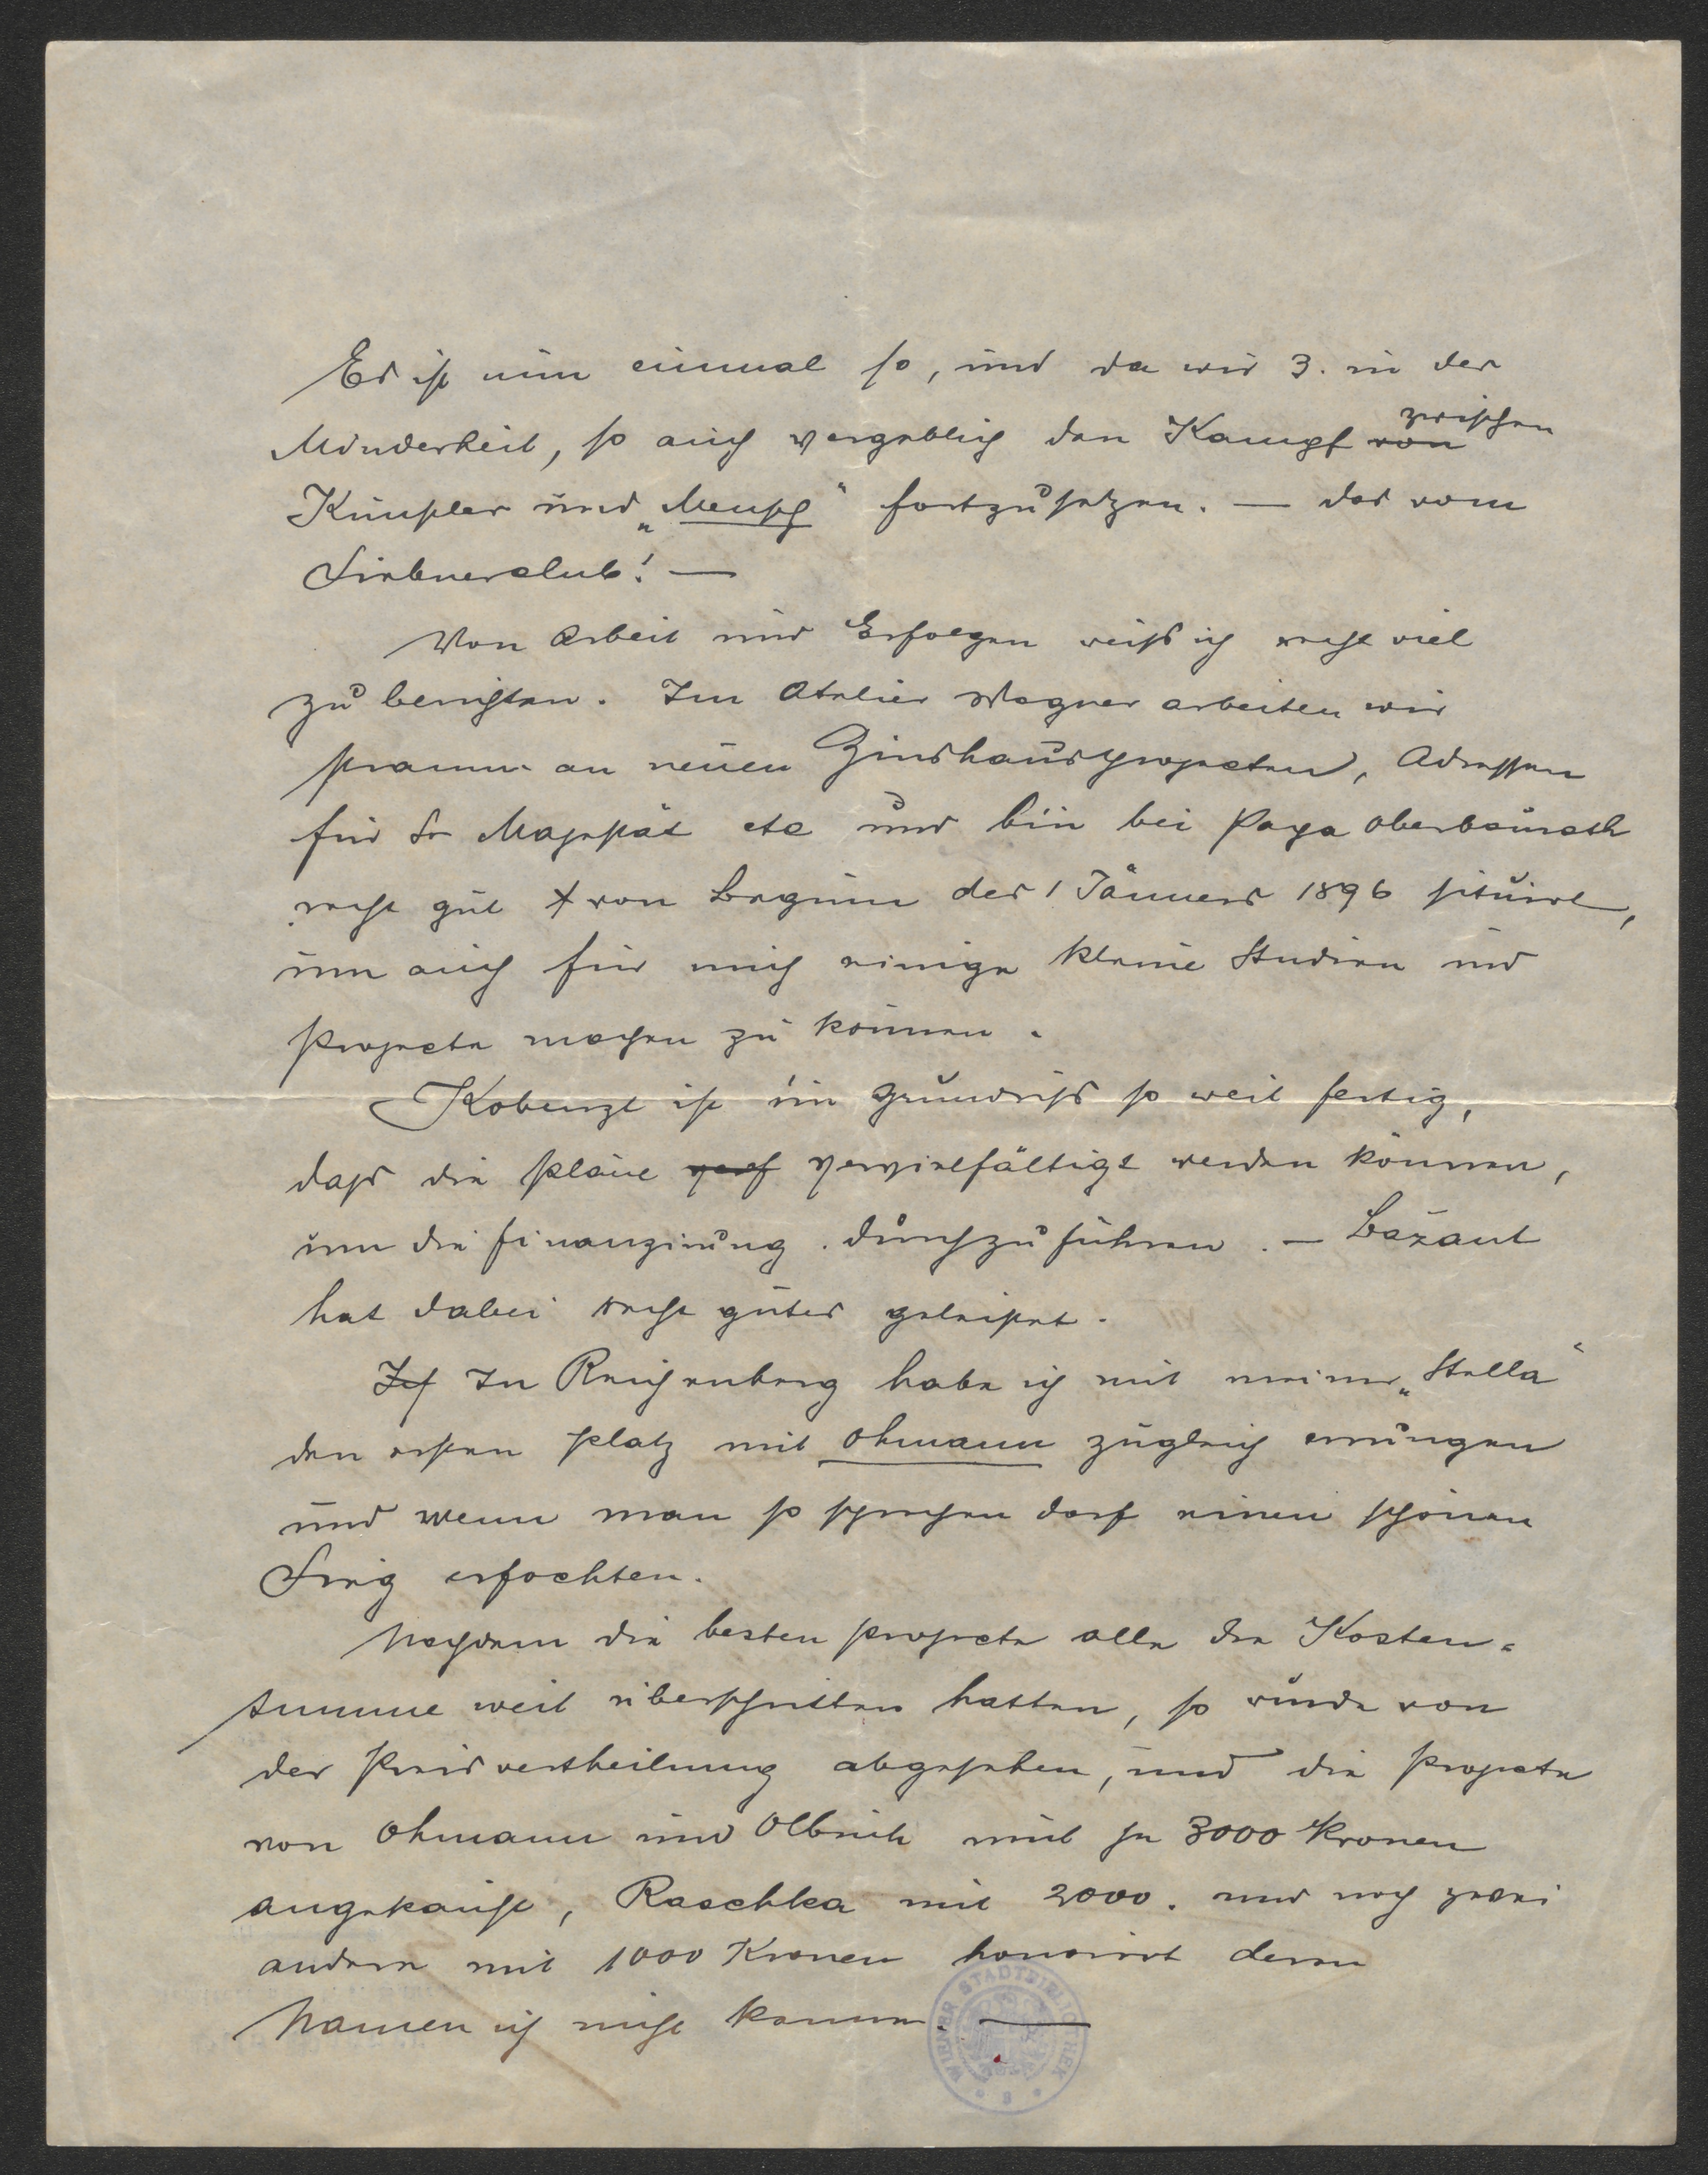 Es ist nun einmal so, und da wir 3. in der
Minderheit, so auch vergeblich den Kampf von zwischen
Künstler und „Mensch“ fortzusetzen. — das vom
Siebnerclub! —
Von Arbeit und Erfolgen weiß ich recht viel
zu berichten. Im Atelier Wagner arbeiten wir
stramm an neuen Zinshausprojecten, Adressen
für Sr Majestät etc und bin bei Papa Oberbaurath
recht gut von Beginn des 1 Jänners 1896 situirt,
um auch für mich einige kleine Studien und
Projecte machen zu können.
Kobenzl ist im Grundriss so weit fertig,
dass die Pläne verf vervielfältigt werden können,
um die Finanzirung durchzuführen. — Bažant
hat dabei recht gutes geleistet.
Ich In Reichenberg habe ich mit meiner „Stella“
den ersten Platz mit Ohmann zugleich errungen
und wenn man so sprechen darf einen schönen
Sieg erfochten.
Nachdem die besten Projecte alle die Kosten=
summe weit überschritten hatten, so wurde von
der Preisvertheilung abgesehen, und die Projecte
von Ohmann und Olbrich mit je 3000 Kronen
angekauft, Raschka mit 2000. und noch zwei
andere mit 1000 Kronen honorirt deren
Namen ich nicht kenne. —
WIENER STADTBIBLIOTHEK